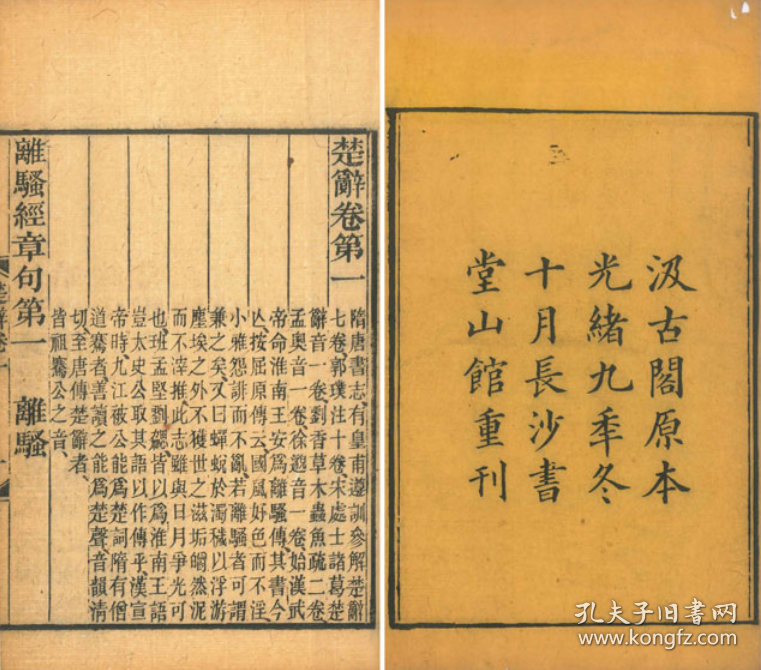 汲古閣原本
光緒九秊冬
十月長沙書
堂山館重刊
楚辭卷第一
隋唐書志、有皇甫遵訓參解楚辭
七卷、郭璞注十卷、宋處士諸葛楚
辭音一卷、劉杳草木蟲魚疏二卷、
孟奧音一卷、徐邈音一卷、始漢武
帝命淮南王安爲離騷傳、其書今
亡、按屈原傳云、國風好色而不淫、
小雅怨誹而不亂、若離騷者、可謂
兼之矣、又曰、蟬蛻於濁穢、以浮游
塵埃之外、不獲世之滋垢、皭然泥
而不滓、推此志、雖與日月爭光可
也、班孟堅劉勰、皆以爲淮南王語、
豈太史公取其語以作傳乎、漢宣
帝時、九江被公能爲楚詞、隋有僧
道騫者善讀之、能爲楚聲、音韻清
切、至唐傳楚辭者、
皆祖騫公之音、
離騷經章句第一 離騷
楚辭卷一
孔夫子旧书网
www.kongfz.com